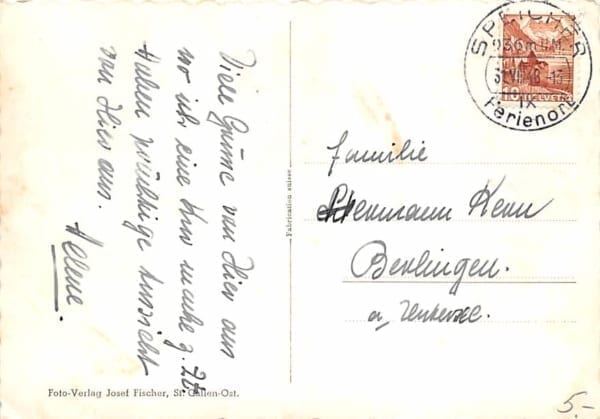 Viele Grüsse von Hier aus
wo ich eine Kur mache z. Zt.
Haben prächtige Aussicht
von Hier aus.
Helene.
Fabrication suisse
SPEICHER
936m Ü.M.
31.VII.48.-13
IX
Ferienort
10 HELVETIA
Familie
Hermann Kern
Berlingen.
a, Untersee.
Foto-Verlag Josef Fischer, St. Gallen-Ost.
5.-